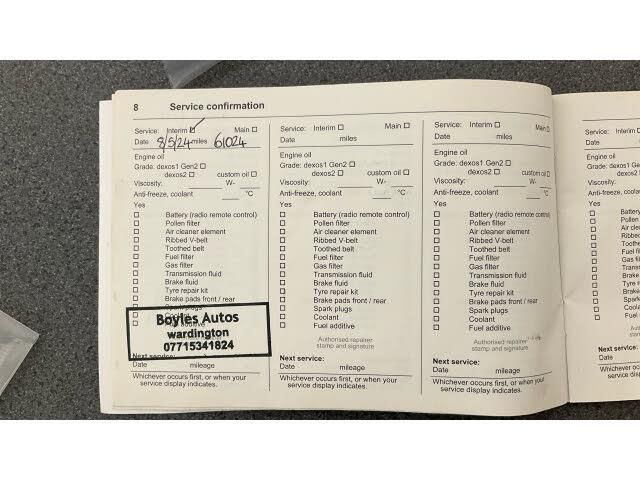 8 Service confirmation
Service: Interim Main
Date 8/5/24 miles 61024
Engine oil
Grade: dexos1 Gen2
dexos2 custom oil
Viscosity: W-
Anti-freeze, coolant °C
Yes
Battery (radio remote control)
Pollen filter
Air cleaner element
Ribbed V-belt
Toothed belt
Fuel filter
Gas filter
Transmission fluid
Brake fluid
Tyre repair kit
Brake pads front / rear
Spark plugs
Boyles Autos
wardington
07715341824
Next service:
Date mileage
Whichever occurs first, or when your
service display indicates.
Service: Interim Main
Date miles
Engine oil
Grade: dexos1 Gen2
dexos2 custom oil
Viscosity: W-
Anti-freeze, coolant °C
Yes
Battery (radio remote control)
Pollen filter
Air cleaner element
Ribbed V-belt
Toothed belt
Fuel filter
Gas filter
Transmission fluid
Brake fluid
Tyre repair kit
Brake pads front / rear
Spark plugs
Coolant
Fuel additive
Authorised repairer
stamp and signature
Next service:
Date mileage
Whichever occurs first, or when your
service display indicates.
Service: Interim Main
Date miles
Engine oil
Grade: dexos1 Gen2
dexos2 custom oil
Viscosity: W-
Anti-freeze, coolant °C
Yes
Battery (radio remote control)
Pollen filter
Air cleaner element
Ribbed V-belt
Toothed belt
Fuel filter
Gas filter
Transmission fluid
Brake fluid
Tyre repair kit
Brake pads front / rear
Spark plugs
Coolant
Fuel additive
Authorised repairer
stamp and signature
Next service:
Date mileage
Whichever occurs first, or when your
service display indicates.
Service:
Date
Engine oil
Grade: dexos1
dexos2
Viscosity:
Anti-freeze,
Yes
Pollen
Air
Next service:
Date
Whichever
service